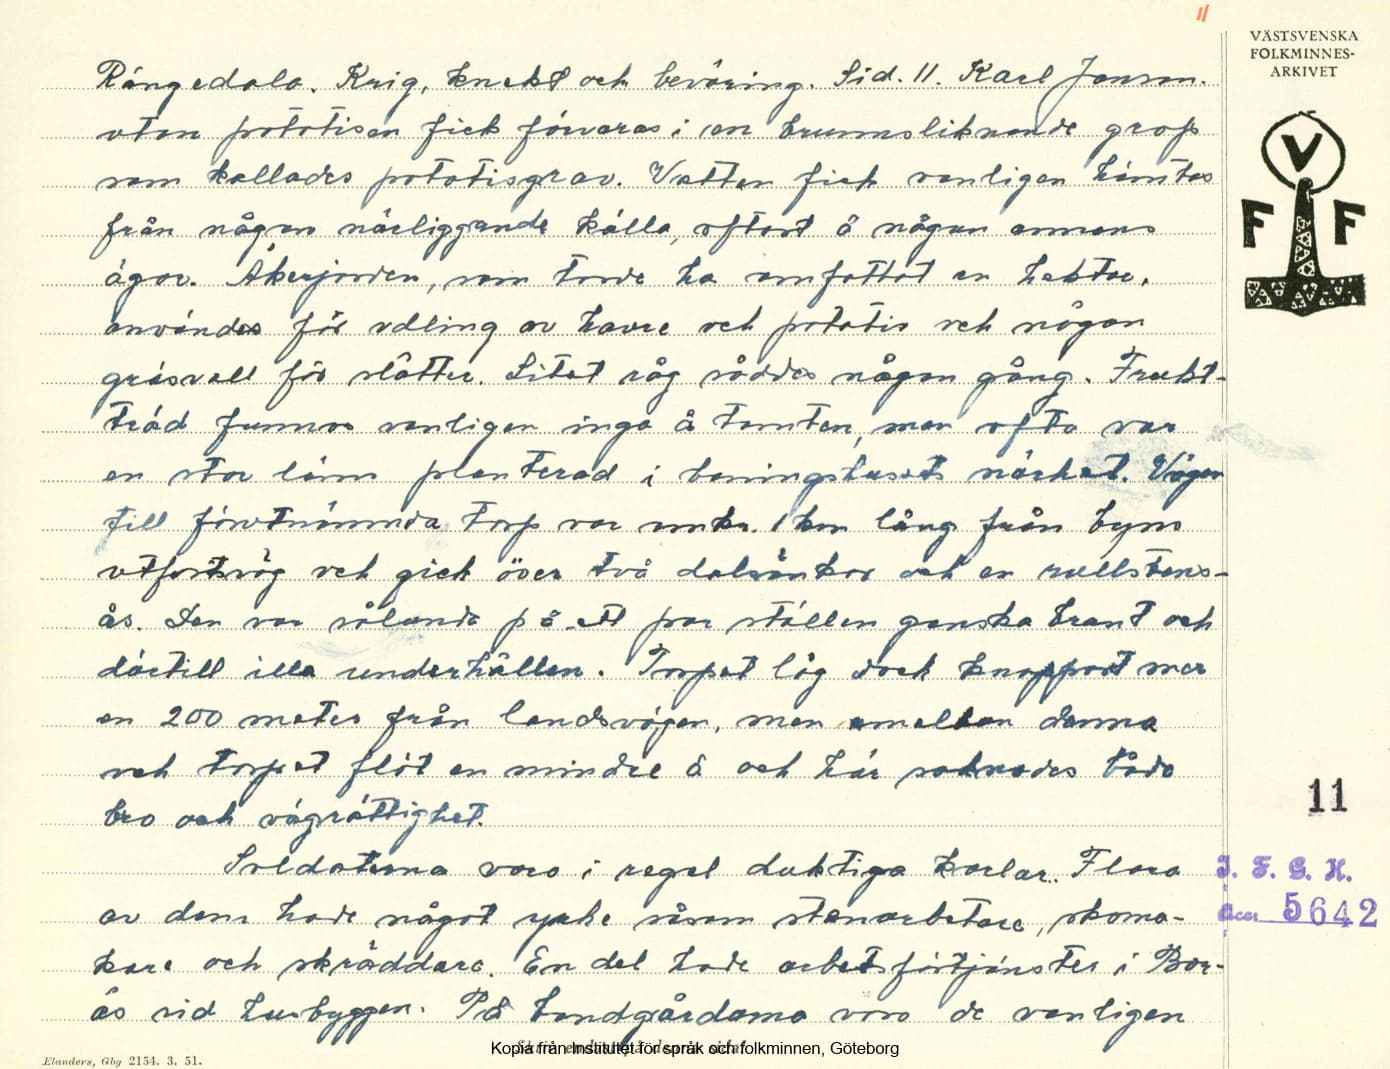 11
VÄSTSVENSKA
FOLKMINNES-
ARKIVET
V
F F
Rångedala. Krig, knekt och beväring. Sid. 11. Karl Jonson.
utan potatisen fick förvaras i en brunnsliknande grop
som kallades potatisgrav. Vatten fick vanligen hämtas
från någon närliggande källa, oftast å någon annans
ägor. Åkerjorden, som torde ha omfattat en hektar,
användes för odling av havre och potatis och någon
gräsvall för slåtter. Litet råg såddes någon gång. Frukt-
träd funnos vanligen inga å tomten, men ofta var
en stor lönn planterad i boningshusets närhet. Vägen
till förutnämnda torp var omkr. 1 km lång från byns
utfartsväg och gick över två dalsänkor och en rullstens-
ås. Den var således på ett par ställen ganska brant och
därtill illa underhållen. Torpet låg dock knappast mer
en 200 meter från landsvägen, men emellan denna
och torpet flöt en mindre å och här saknades både
bro och vägrättighet.
Soldaterna voro i regel duktiga karlar. Flera
av dem hade något yrke såsom stenarbetare, skoma-
kare och skräddare. En del hade arbetsförtjänster i Bor-
ås vid husbyggen. På bondgårdarna voro de vanligen
11
I. F. G. H.
Acc. 5642
Elanders, Gbg 2154. 3. 51.
Kopia från Institutet för språk och folkminnen, Göteborg